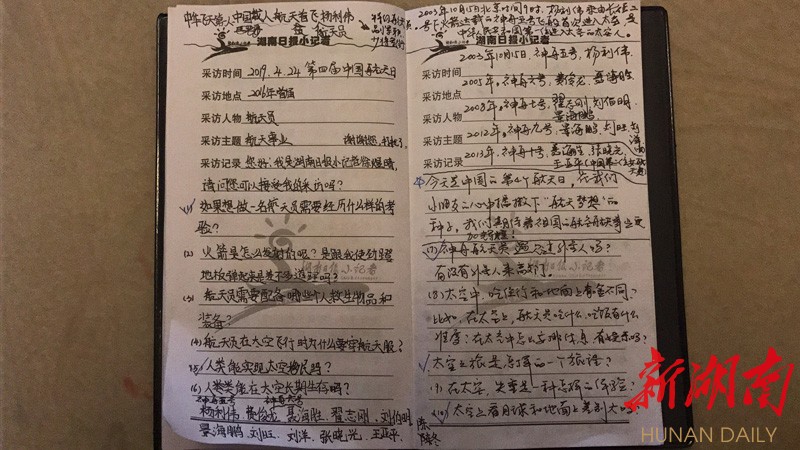 中华飞天第一人中国载人航天首飞杨利伟
航天员
湖南日报小记者
采访时间 2019.4.24 第四届中国航天日
采访地点 2016年首届
采访人物 航天员
采访主题 航天事业
采访记录 您好!我是湖南日报小记者
请问您可以接受我的采访吗?
(1) 如果想做一名航天员需要经历什么样的考
验?
(2) 火箭是怎么发射的呢?是跟我使劲蹬
地板弹起来是差不多道理吗?
(3) 航天员需要配备哪些个人救生物品和
装备?
(4) 航天员在太空飞行时为什么要穿航天服?
(5) 人类能实现太空移民吗?
(6) 人类能在太空长期生存吗?
神舟五号 神舟六号
杨利伟 费俊龙 聂海胜 翟志刚 刘伯明
景海鹏 刘旺 刘洋 张晓光 王亚平
陈冬
2003年10月15日北京时间9时,杨利伟
湖南日报小记者
2003年10月15日,神舟五号,杨利伟
采访时间 2005年,神舟六号,费俊龙,聂海胜
采访地点
采访人物 2008年,神舟七号,翟志刚,刘伯明
景海鹏
采访主题 2012年,神舟九号,景海鹏,刘旺,刘洋
采访记录 2013年,神舟十号,聂海胜,张晓光
王亚平
今天是中国的第4个航天日,在我们
小朋友心中播撒下“航天梦想”的
种子,我们期待着祖国的航天事业更
加辉煌!
(7) 神舟航天员遇见过外星人吗?
有没有外星人来敲门。
(8) 太空中,吃住行和地面上有啥不同?
比如,在太空上,航天员吃什么,吃饭有什么
难度?在太空中怎么安排休息,有娱乐吗?
太空之旅是怎样的一个旅程?
(9) 在太空,失重是一种怎样的体验?
(10) 太空上看月球和地面上差别大吗?
新湖南
HUNAN DAILY